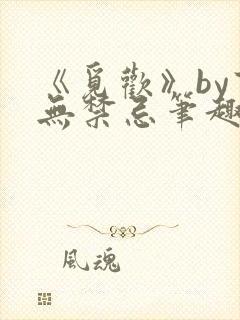 《覓歡》by
無禁忌筆趣
風魂